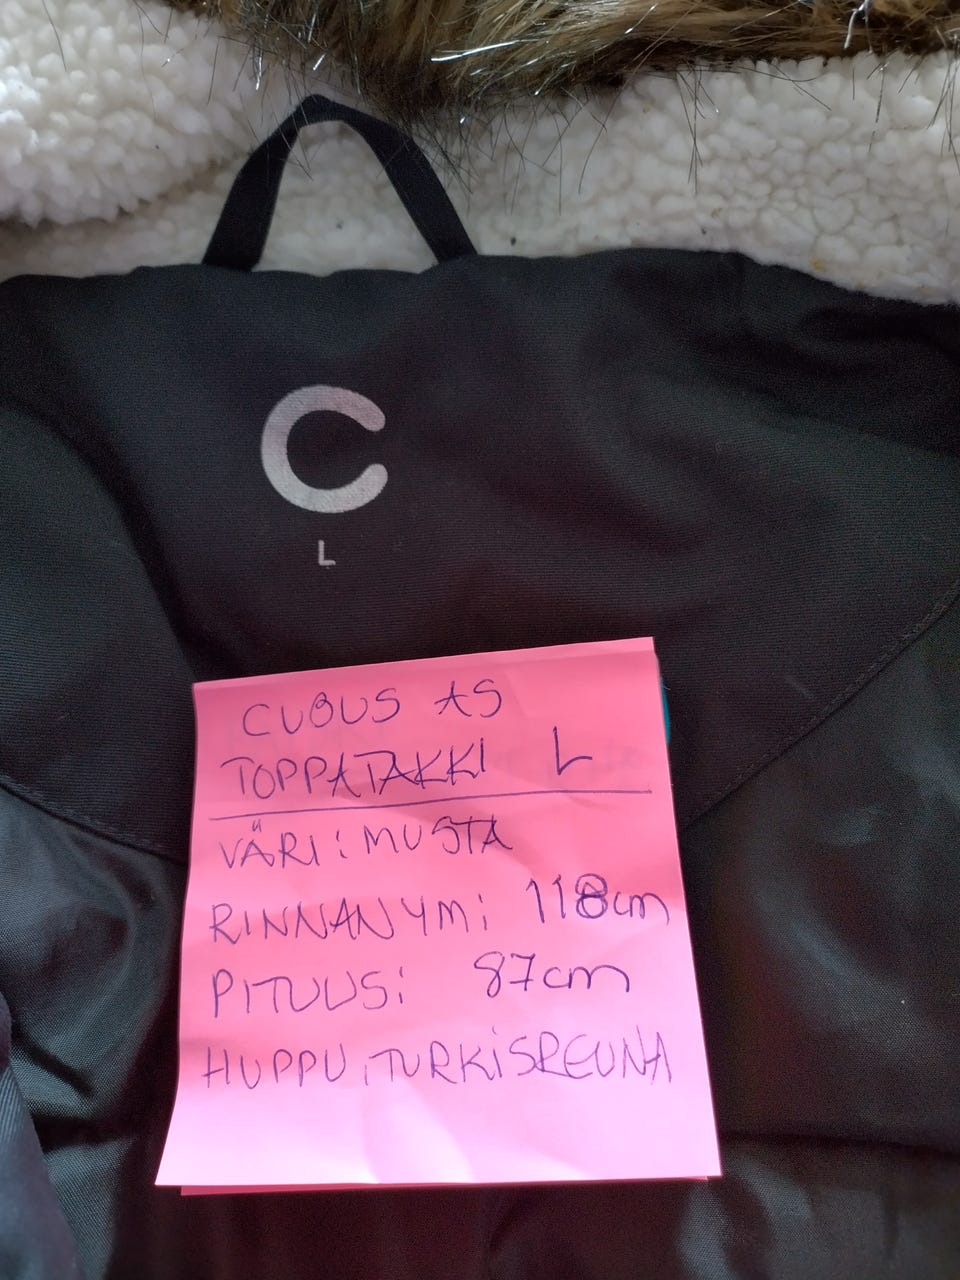 C
L
CUBUS AS
TOPPATAKKI L
VÄRI: MUSTA
RINNANYM: 118cm
PITUUS: 87cm
HUPPU, TURKISREUNA